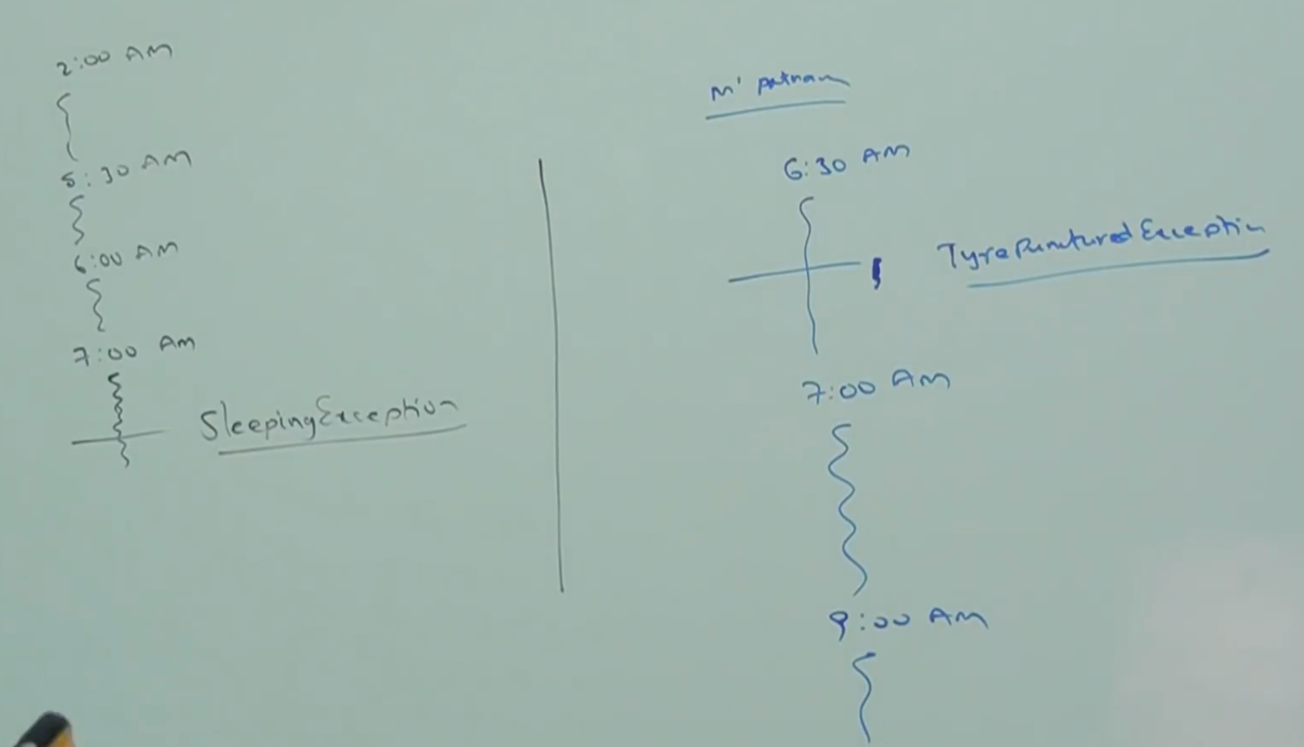 2:00 AM
5:30 AM
6:00 AM
7:00 AM
SleepingException
M' Patnam
6:30 AM
TyrePunturedExceptin
7:00 AM
9:00 AM